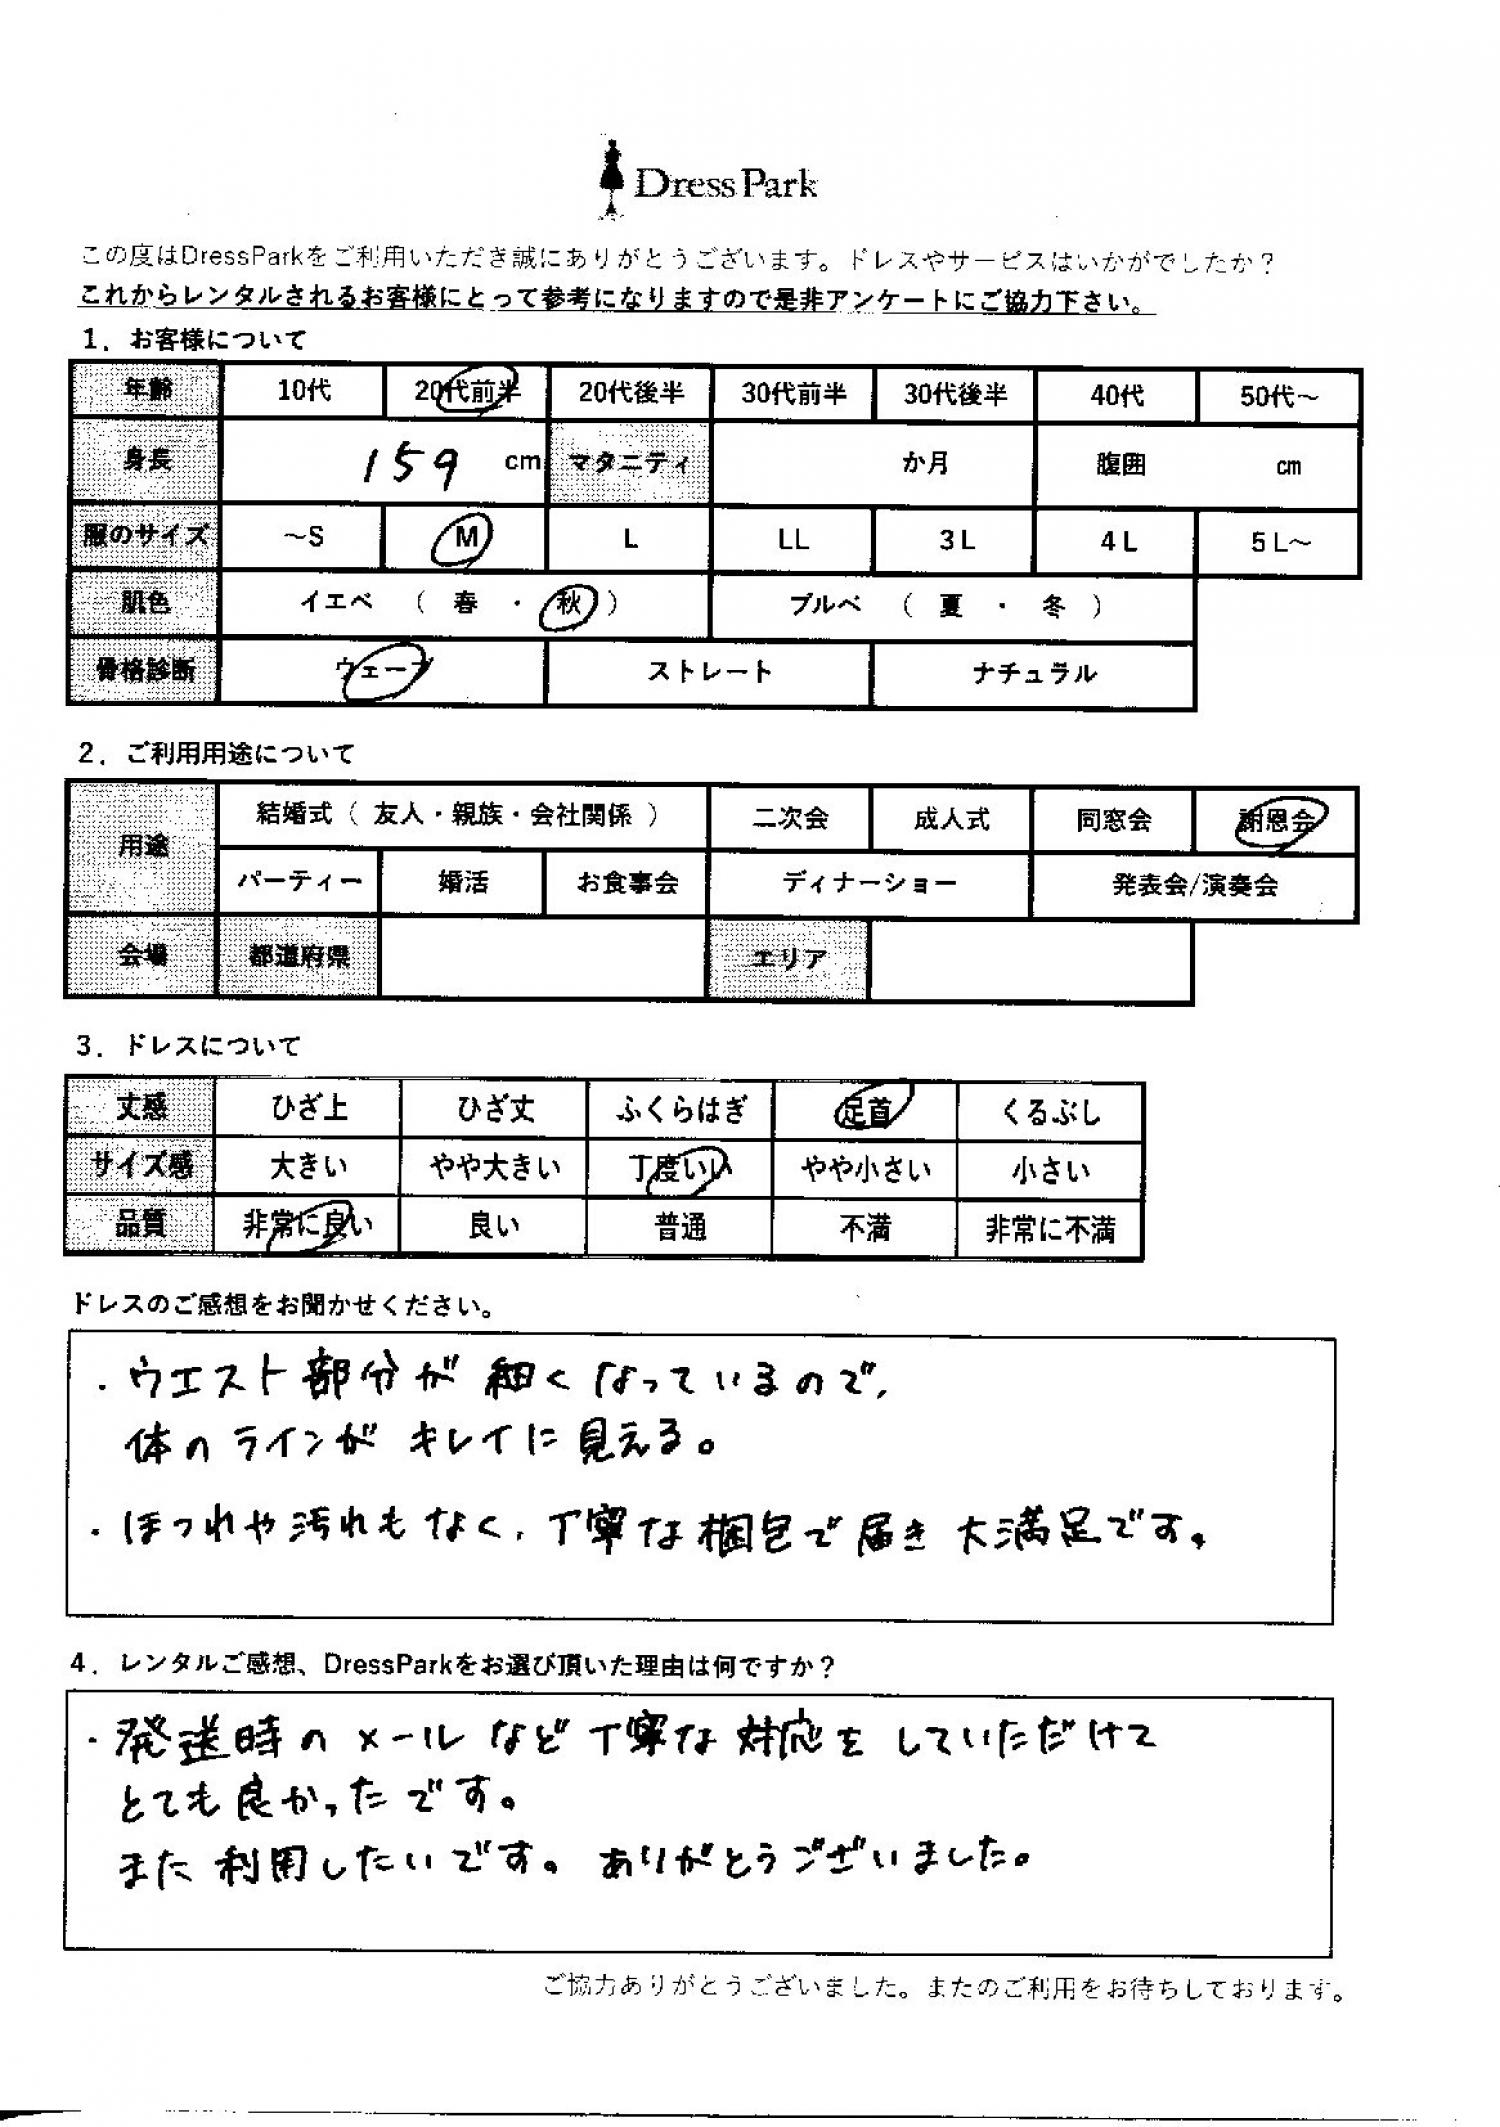 Dress Park
この度はDressParkをご利用いただき誠にありがとうございます。ドレスやサービスはいかがでしたか？
これからレンタルされるお客様にとって参考になりますので是非アンケートにご協力下さい。
1．お客様について
年齢 10代 20代前半 20代後半 30代前半 30代後半 40代 50代～
身長 159 cm マタニティ か月 腹囲 cm
服のサイズ ～S M L LL 3L 4L 5L～
肌色 イエベ （ 春 ・ 秋 ） ブルベ （ 夏 ・ 冬 ）
骨格診断 ウェーブ ストレート ナチュラル
2．ご利用用途について
用途 結婚式（ 友人・親族・会社関係 ） 二次会 成人式 同窓会 謝恩会
パーティー 婚活 お食事会 ディナーショー 発表会/演奏会
会場 都道府県 エリア
3．ドレスについて
丈感 ひざ上 ひざ丈 ふくらはぎ 足首 くるぶし
サイズ感 大きい やや大きい 丁度いい やや小さい 小さい
品質 非常に良い 良い 普通 不満 非常に不満
ドレスのご感想をお聞かせください。
・ウエスト部分が細くなっているので、
体のラインがキレイに見える。
・ほつれや汚れもなく、丁寧な梱包で届き大満足です。
4．レンタルご感想、DressParkをお選び頂いた理由は何ですか？
・発送時のメールなど丁寧な対応をしていただけて
とても良かったです。
また利用したいです。ありがとうございました。
ご協力ありがとうございました。またのご利用をお待ちしております。